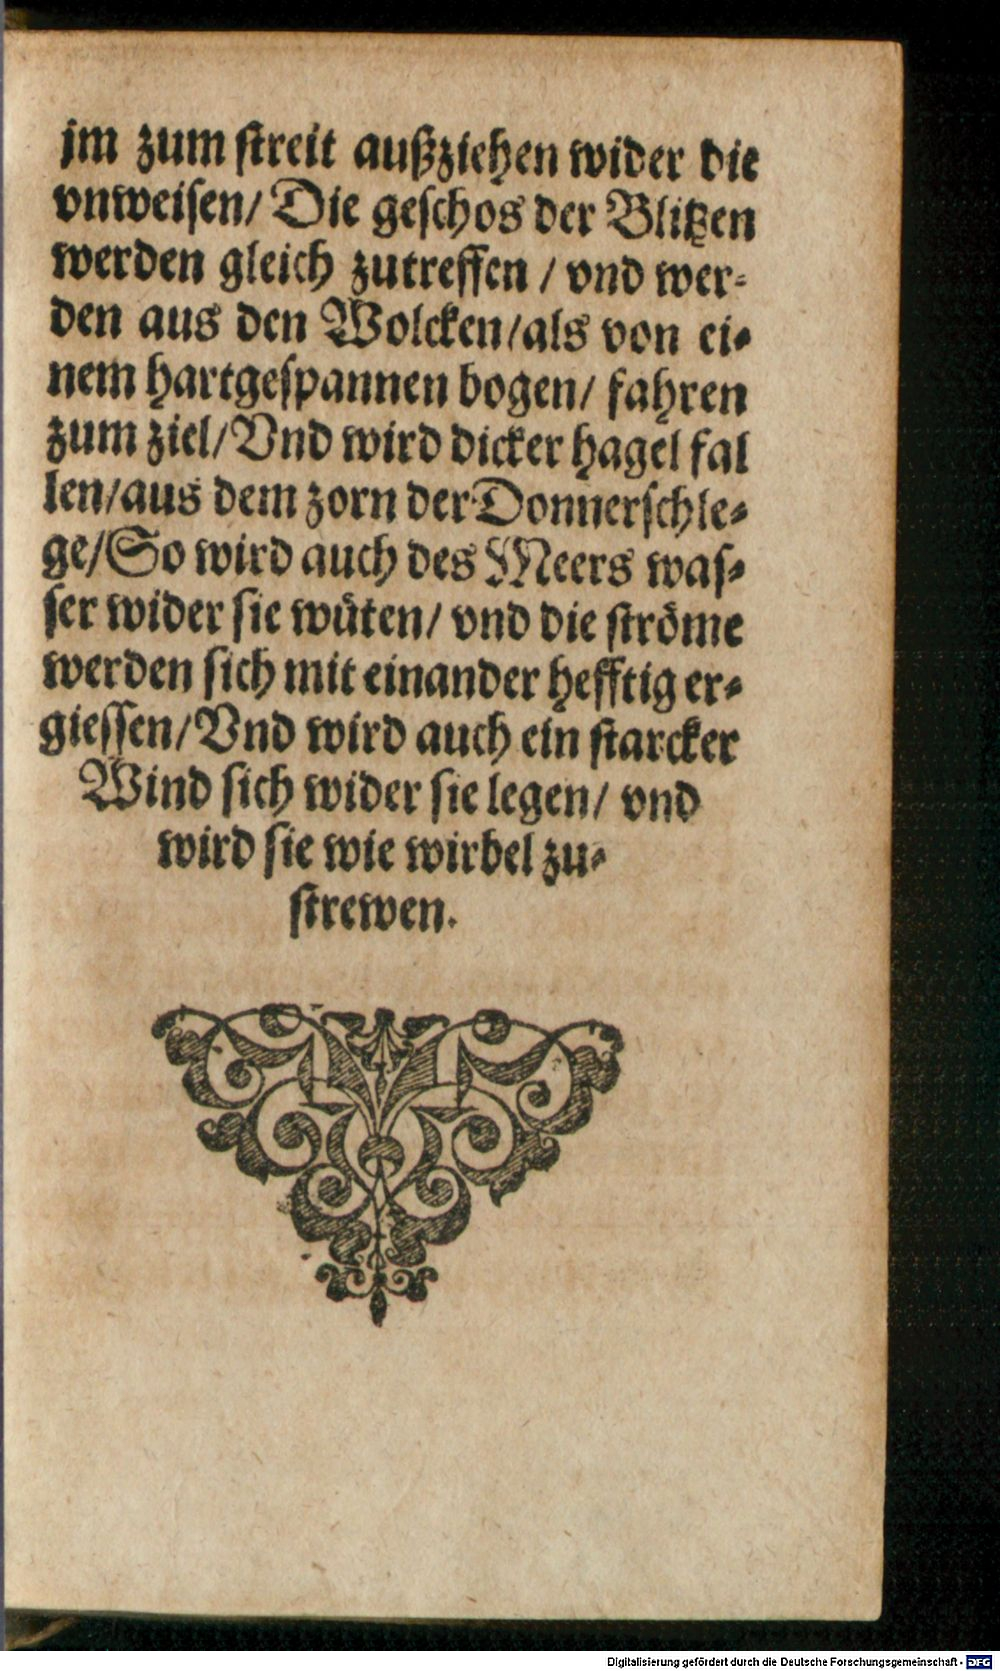 jm zum streit außziehen wider die
vnweisen/ Die geschos der Blitzen
werden gleich zutreffen / vnd wer-
den aus den Wolcken/als von ei-
nem hartgespannen bogen/ fahren
zum ziel/ Vnd wird dicker hagel fal
len/aus dem zorn der Donnerschle-
ge/ So wird auch des Meers was-
ser wider sie wüten/ vnd die ströme
werden sich mit einander hefftig er-
giessen/ Vnd wird auch ein starcker
Wind sich wider sie legen/ vnd
wird sie wie wirbel zu-
strewen.
Digitalisierung gefördert durch die Deutsche Forschungsgemeinschaft - DFG